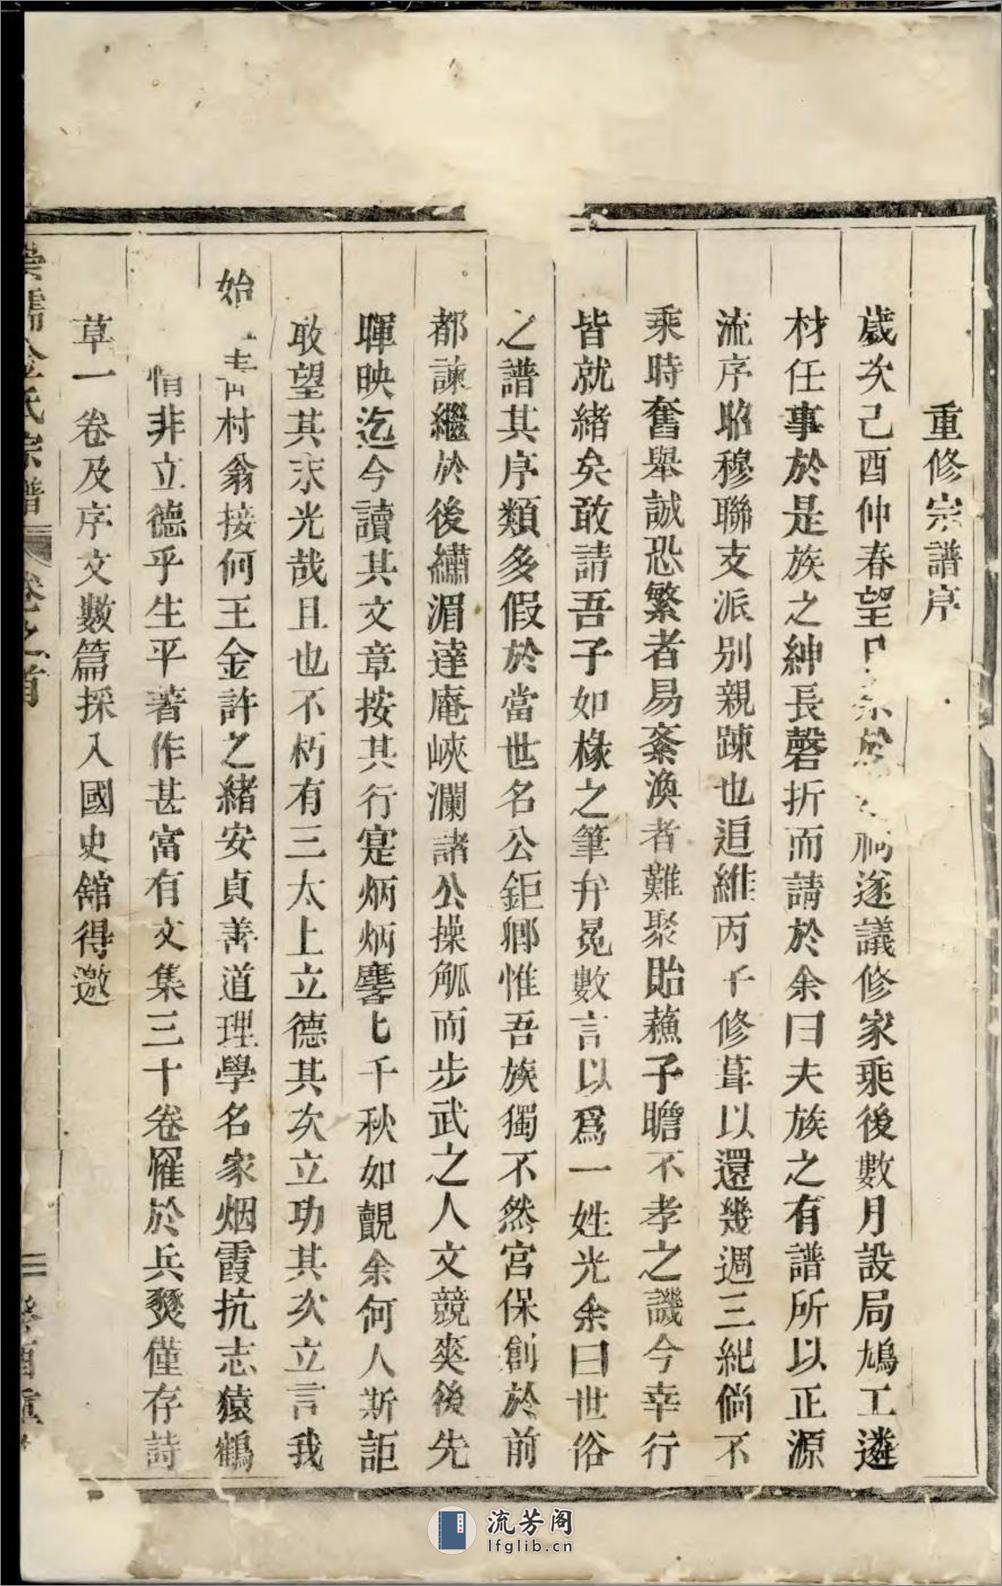 重修宗譜序
歲次己酉仲春望遂議修家乘後數月設局鳩工遴
材任事於是族之紳長磬折而請於余曰夫族之有譜所以正源
流序昭穆聯支派別親踈也追維丙子修葺以還幾週三紀倘不
乘時奮舉誠恐繁者易紊渙者難聚貽蘓子瞻不孝之譏今幸行
皆就緒矣敢請吾子如椽之筆弁冕數言以爲一姓光余曰世俗
之譜其序類多假於當世名公鉅鄉惟吾族獨不然宮保創於前
都諫繼於後繡湄達庵峽瀾諸公操觚而步武之人文競爽後先
暉映迄今讀其文章按其行寔炳炳麐七千秋如覿余何人斯詎
敢望其末光哉且也不朽有三太上立德其次立功其次立言我
始村翁接何王金許之緒安貞善道理學名家烟霞抗志猿鶴
非立德乎生平著作甚富有文集三十卷罹於兵燹僅存詩
草一卷及序文數篇採入國史館得邀
儒金氏宗譜 卷之首 三
流芳阁
lfglib.cn